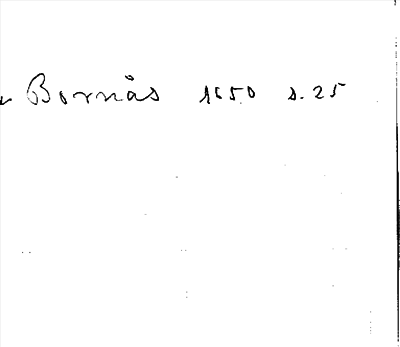 Bornås 1650 s. 25